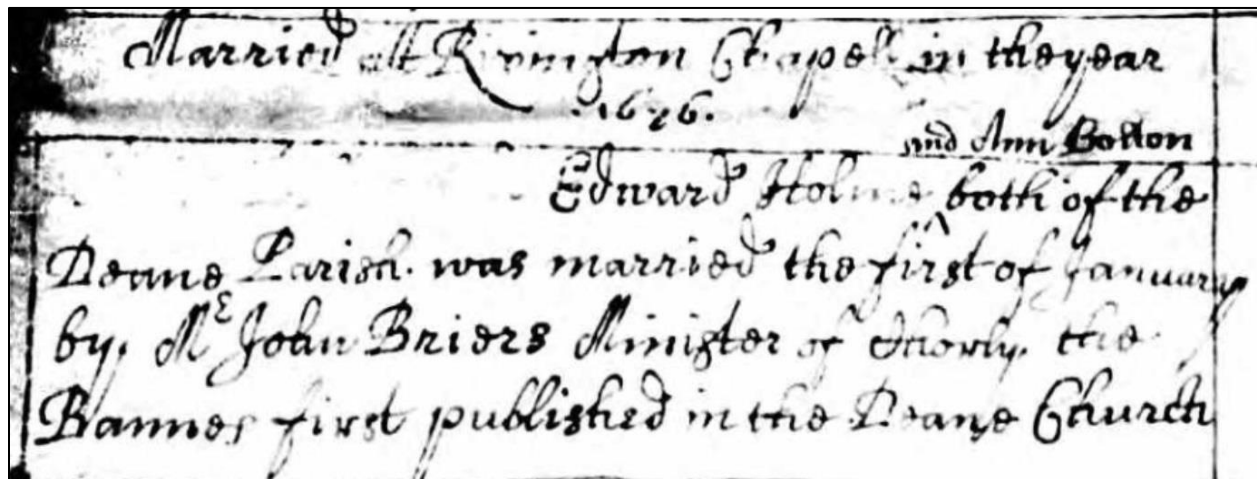 Married att Rivington Chapell in the year
1676.
and Ann Bolton
Edward Holme ^ both of the
Deane Parish was married the first of January
by Mr John Briers Minister of Chorly the
Bannes first published in the Deane Church